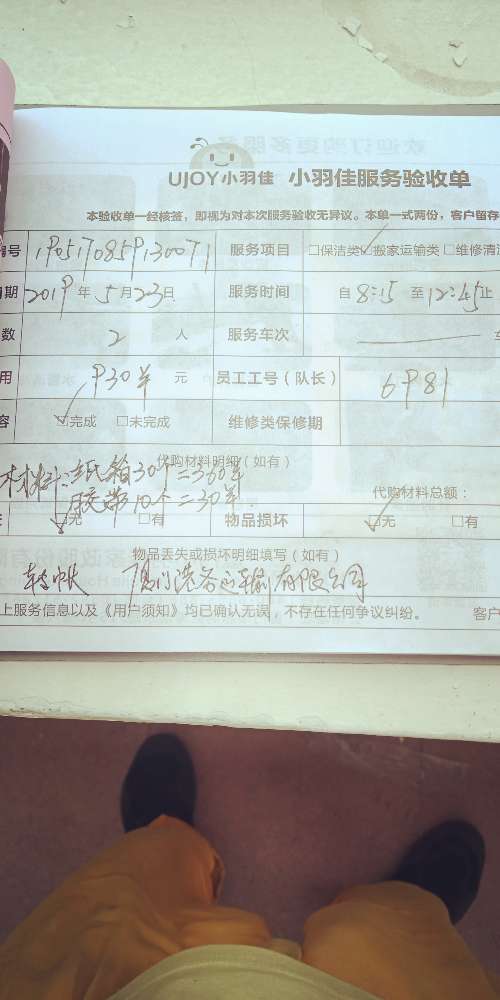 UJOY小羽佳 小羽佳服务验收单
本验收单一经核签，即视为对本次服务验收无异议。本单一式两份，客户留存
编号 服务项目 □保洁类☑搬家运输类 □维修清
日期 2019年5月23日 服务时间 自8:15至12:45止
数 2人 服务车次
用 930羊元 员工工号（队长） 6981
容 ☑完成 □未完成 维修类保修期
代购材料明细（如有）
材料：纸箱30个=360羊
胶带10个=30羊
代购材料总额：
☑无 □有 物品损坏 ☑无 □有
物品丢失或损坏明细填写（如有）
转帐 厦门港务运输有限公司
上服务信息以及《用户须知》均已确认无误，不存在任何争议纠纷。 客户